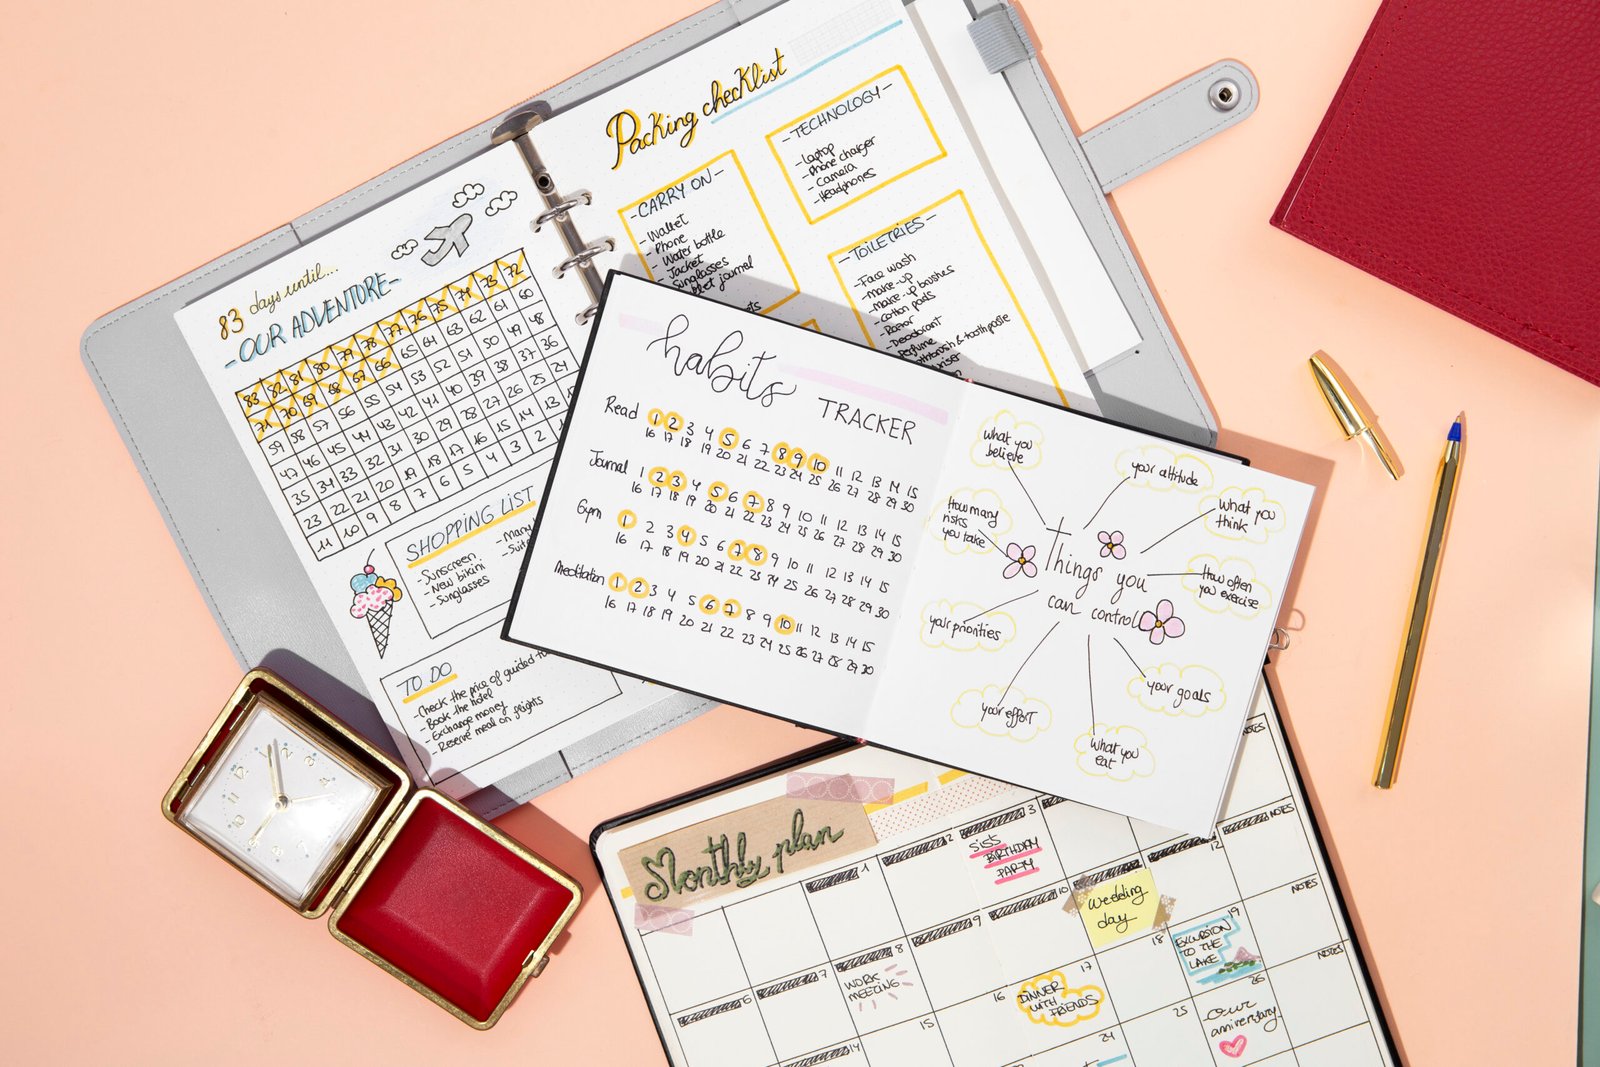 83 days until...
-OUR ADVENTURE-
83 82 81 80 79 78 77 76 75 74 73 72
71 70 69 68 67 66 65 64 63 62 61 60
59 58 57 56 55 54 53 52 51 50 49 48
47 46 45 44 43 42 41 40 39 38 37 36
35 34 33 32 31 30 29 28 27 26 25 24
23 22 21 20 19 18 17 16 15 14 13
11 10 9 8 7 6 5 4 3 2
SHOPPING LIST
-Sunscreen
-New bikini
-Sunglasses
TO DO
-Check the price of guided
-Book the hotel
-Exchange money
-Reserve meal on flights
Packing checklist
-CARRY ON-
-Wallet
-Phone
-Water bottle
-Jacket
-Sunglasses
journal
-TECHNOLOGY-
-Laptop
-Phone charger
-Camera
-Headphones
-TOILETRIES-
-Face wash
-make-up
-make-up brushes
-cotton pads
-Razor
-Deodorant
-Perfume
& toothpaste
habits TRACKER
Read 1 2 3 4 5 6 7 8 9 10 11 12 13 14 15
16 17 18 19 20 21 22 23 24 25 26 27 28 29 30
Journal 1 2 3 4 5 6 7 8 9 10 11 12 13 14 15
16 17 18 19 20 21 22 23 24 25 26 27 28 29 30
Gym 1 2 3 4 5 6 7 8 9 10 11 12 13 14 15
16 17 18 19 20 21 22 23 24 25 26 27 28 29 30
Meditation 1 2 3 4 5 6 7 8 9 10 11 12 13 14 15
16 17 18 19 20 21 22 23 24 25 26 27 28 29 30
Things you
can control
what you
believe
your attitude
what you
think
How often
you exercise
your goals
what you
eat
your effort
your priorities
How many
risks
you take
Monthly plan
NOTES
1
2
3
SIS'S
BIRTHDAY
PARTY
NOTES
6
7
8
WORK
MEETING
9
10
wedding
day
12
NOTES
14
15
16
17
DINNER
WITH
FRIENDS
18
19
EXCURSION
TO THE
LAKE
NOTES
24
25
26
our
anniversary
12
1
2
3